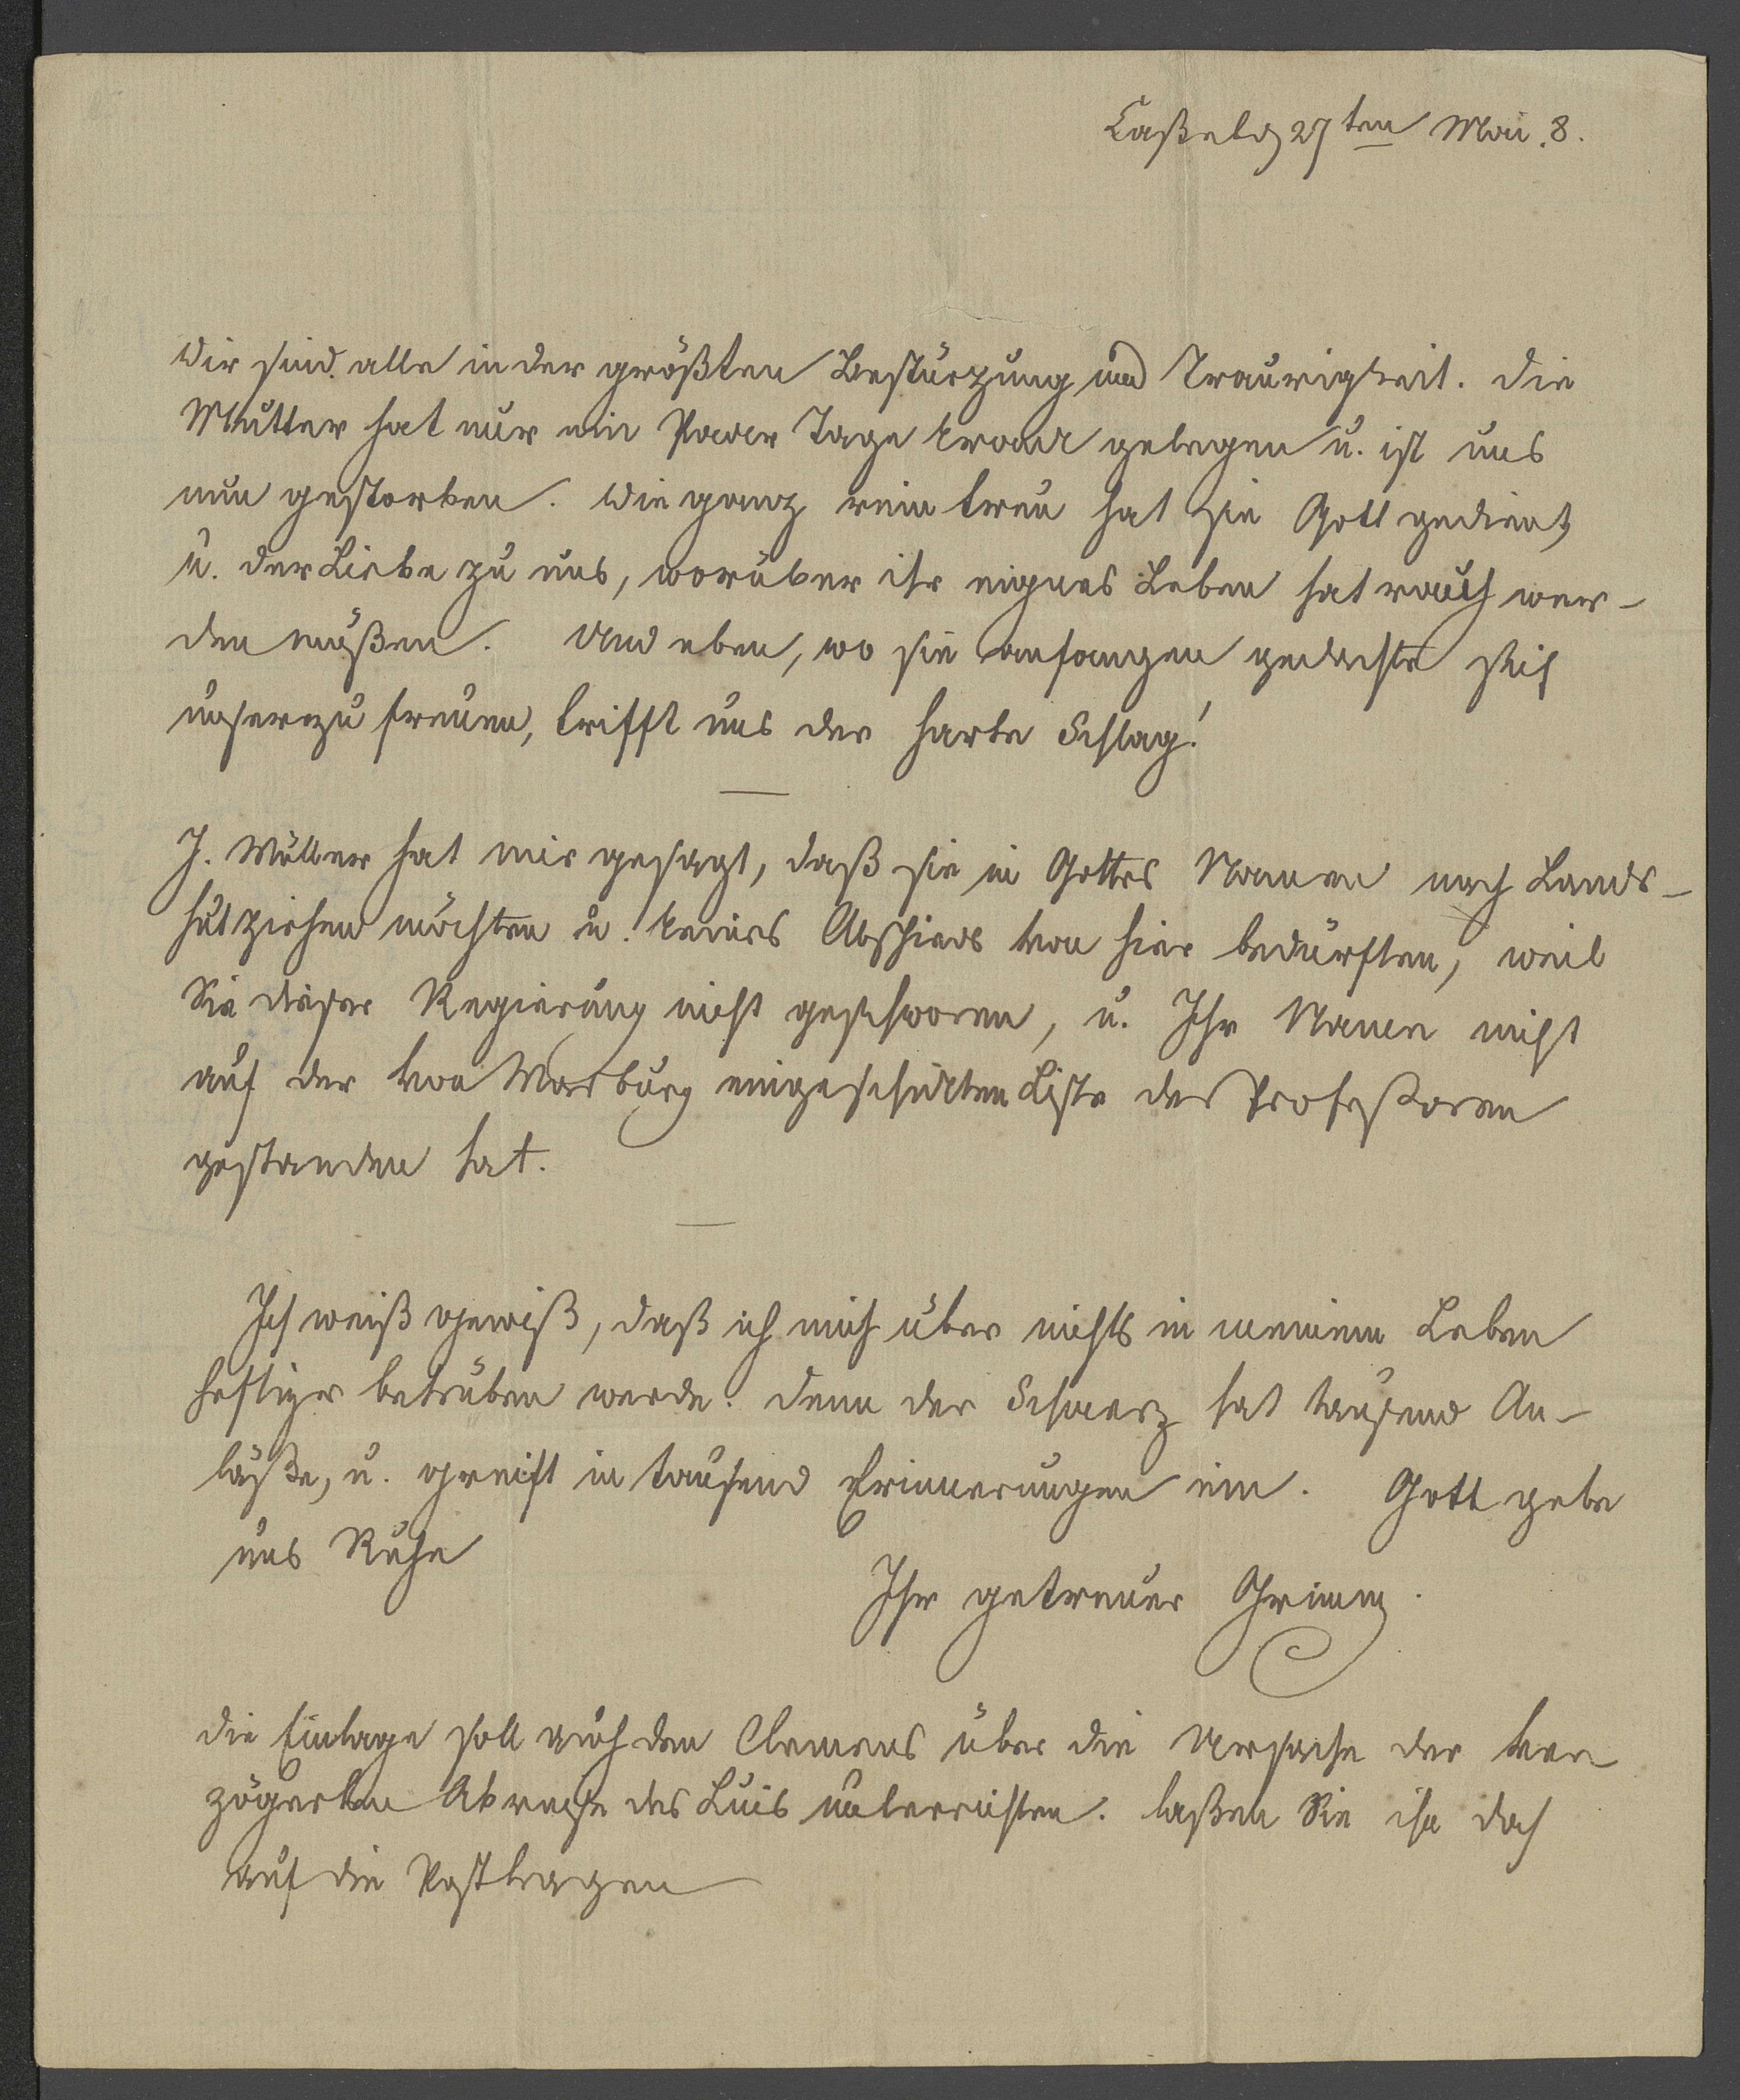 Caßel d 27ten Mai 8.
Wir sind alle in der größten Bestürzung und Traurigkeit. Die
Mutter hat nur ein Paar Tage krank gelegen u. ist uns
nun gestorben. Wie ganz rein treu hat sie Gott gedient,
u. der Liebe zu uns, worüber ihr eignes Leben hat rauh wer-
den müßen. Und eben, wo sie anfangen gedachte sich
unser zu freuen, trifft uns der harte Schlag!
J. Müller hat mir gesagt, daß sie in Gottes Namen nach Lands-
hut ziehen möchten u. keines Abschieds von hier bedürften, weil
Sie dieser Regierung nicht geschworen, u. Ihr Namen nicht
auf der von Marburg eingeschickten Liste der Profeßoren
gestanden hat.
Ich weiß gewiß, daß ich mich über nichts in meinem Leben
heftiger betrüben werde. denn der Schmerz hat tausend An-
läße, u. greift in tausend Erinnerungen ein. Gott gebe
uns Ruhe
Ihr getreuer Grimm.
die Einlage soll auch den Clemens über die Ursache der ver
zögerten Abreise des Luis unterrichten. laßen Sie ihn doch
auf die Post tragen